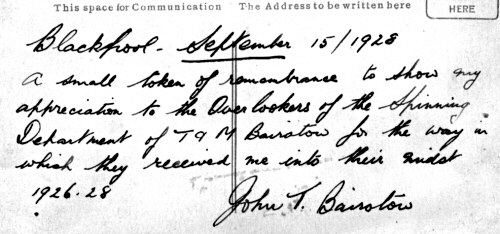 This space for Communication The Address to be written here
HERE
Blackpool - September 15/1928
A small token of remembrance to show my
appreciation to the Overlookers of the Spinning
Department of T & M Bairstow for the way in
which they received me into their midst
1926.28
John T. Bairstow